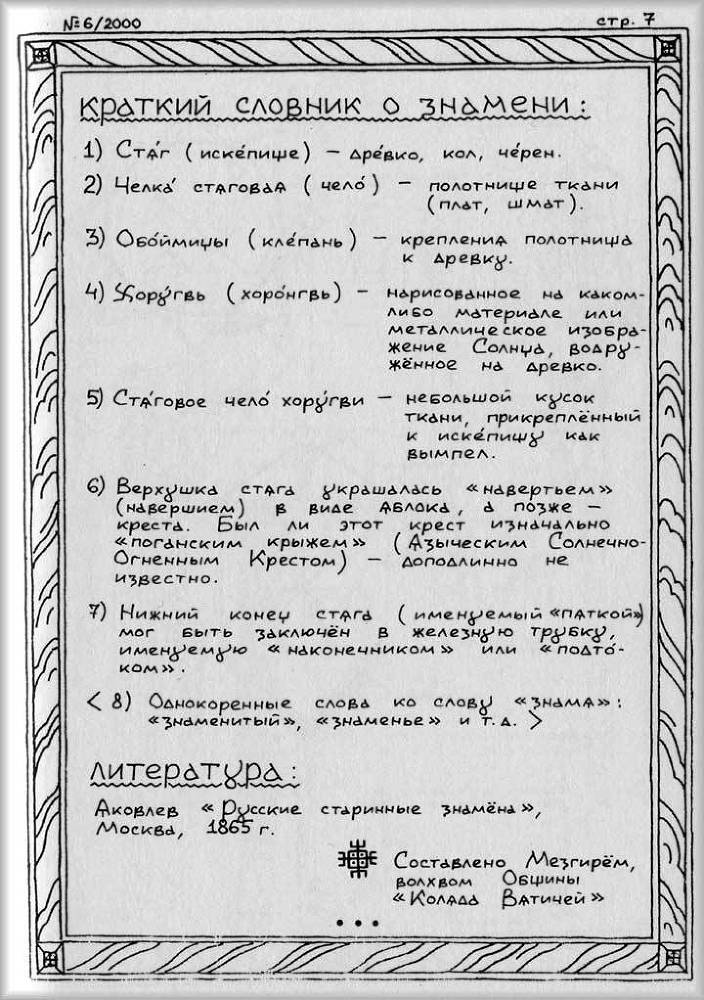 № 6/2000
стр. 7
Краткий словник о знамени:
1) Стя́г (иске́пище) – дре́вко, кол, че́рен.
2) Челка́ стяговая (чело́) – полотнище ткани
(плат, шмат).
3) Обо́ймицы (кле́пань) – крепления полотнища
к древку.
4) Хору́гвь (хоро́нгвь) – нарисованное на каком-
либо материале или
металлическое изобра-
жение Солнца, водру-
жённое на древко.
5) Стя́говое чело́ хору́гви – небольшой кусок
ткани, прикреплённый
к иске́пищу как
вымпел.
6) Верхушка стяга украшалась «навертьем»
(навершием) в виде яблока, а позже –
креста. Был ли этот крест изначально
«поганским крыжем» (Языческим Солнечно-
Огненным Крестом) – доподлинно не
известно.
7) Нижний конец стяга (именуемый «пяткой»)
мог быть заключён в железную трубку,
именуемую «наконечником» или «подто́-
ком».
< 8) Однокоренные слова ко слову «знамя»:
«знаменитый», «знаменье» и т.д. >
Литература:
Яковлев «Русские старинные знамёна»,
Москва, 1865 г.
Составлено Мезгирём,
волхвом Общины
«Коляда Вятичей»
• • •